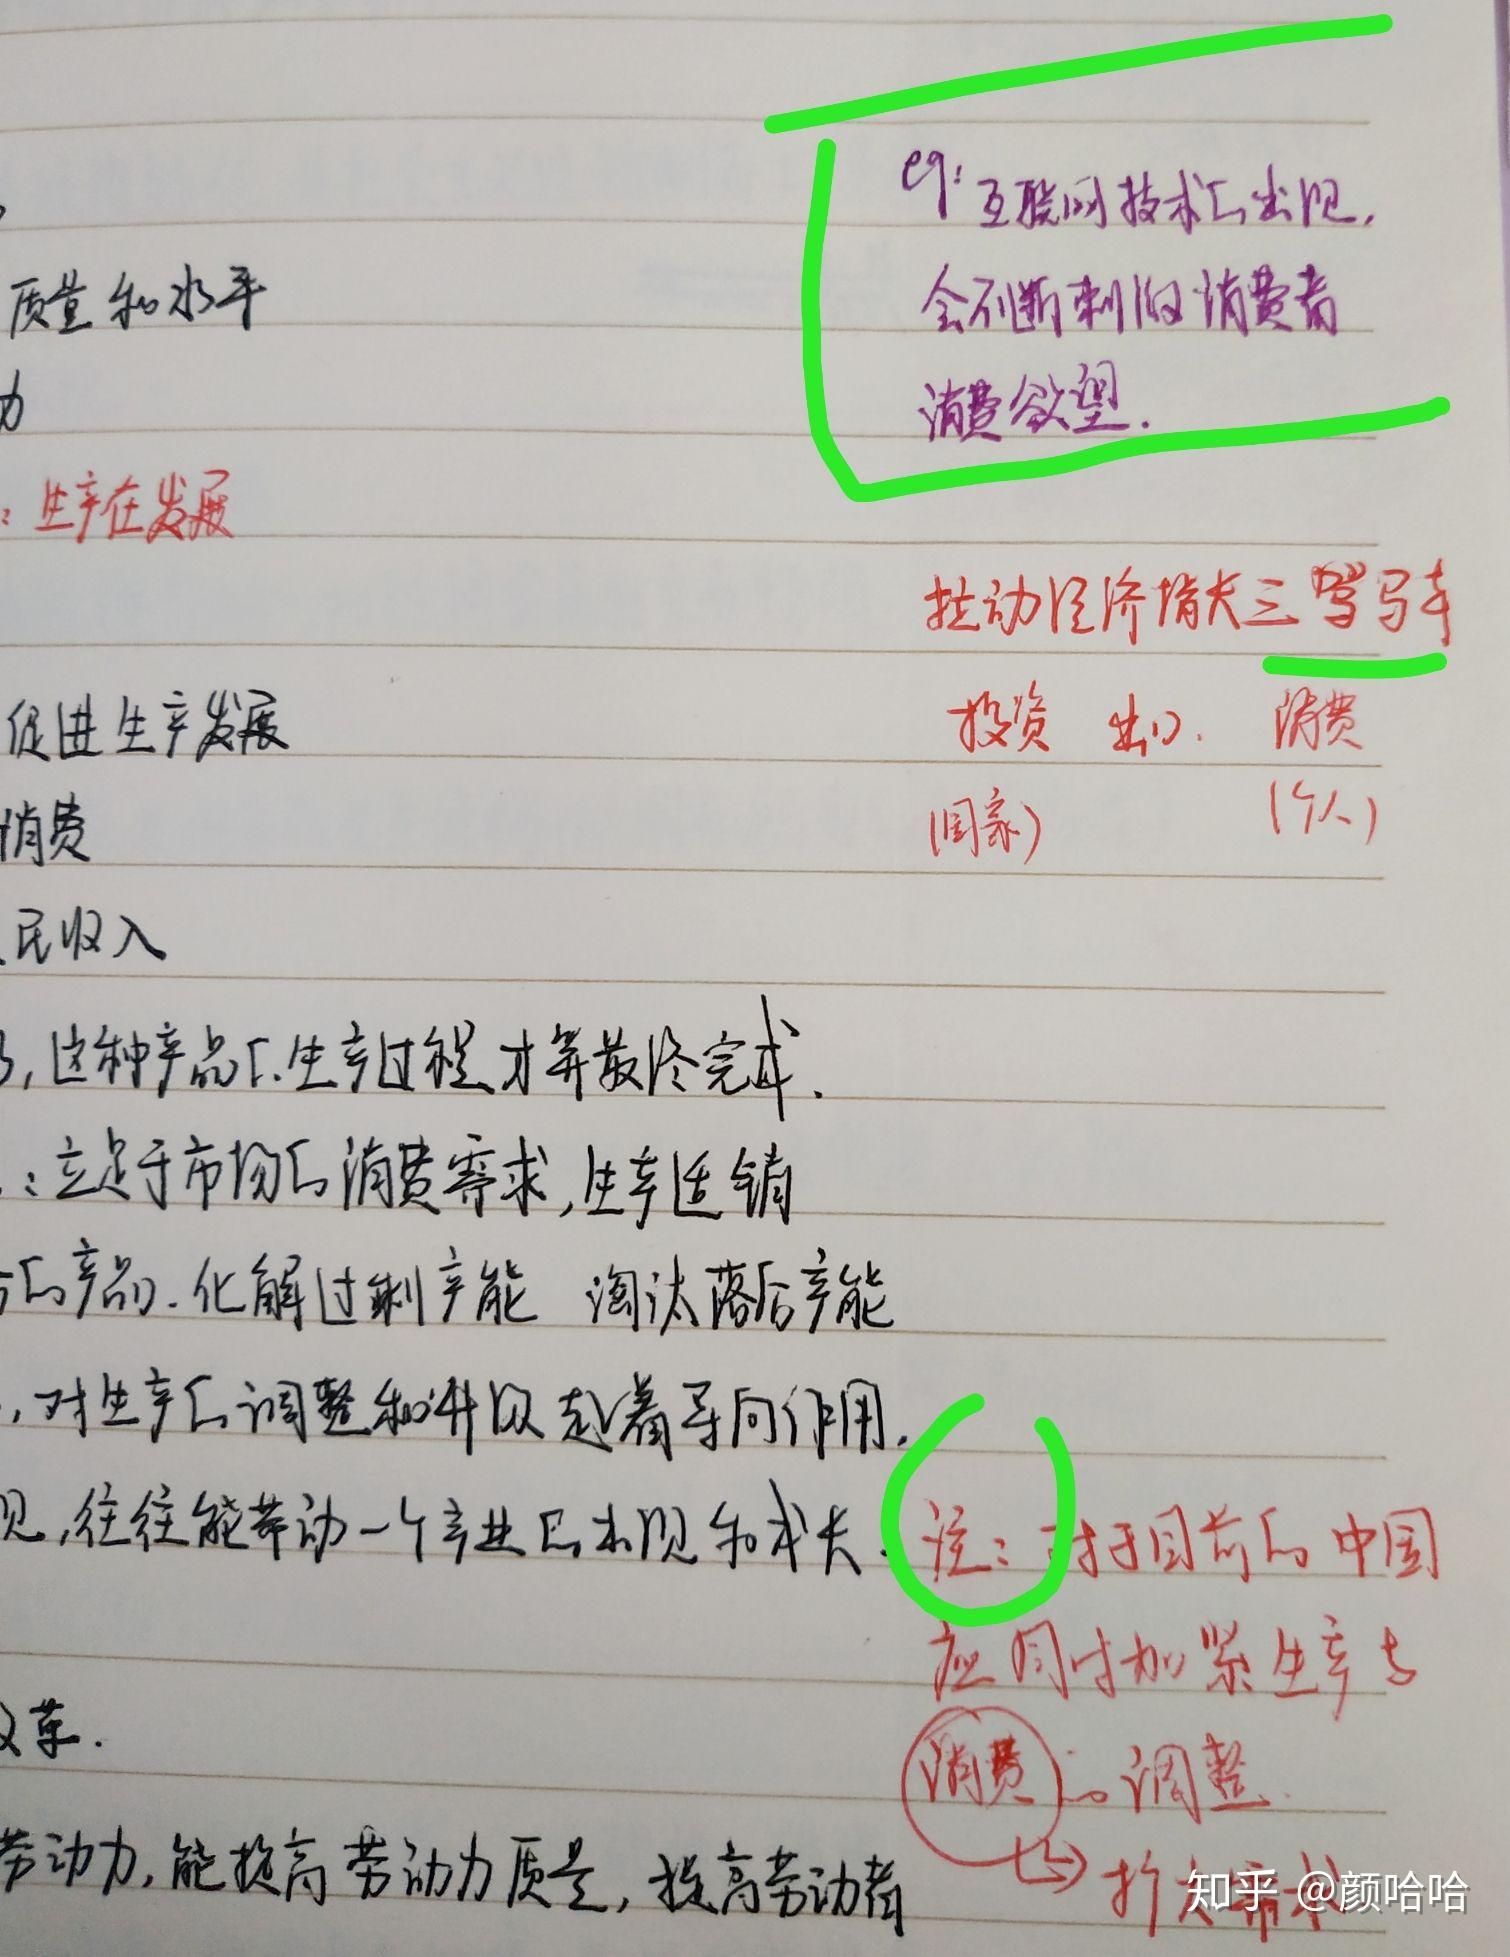 eg: 互联网技术的出现,
会不断刺激消费者
消费欲望.
质量和水平
力
: 生产在发展
拉动经济增长三驾马车
投资 出口. 消费
(国家) (个人)
促进生产发展
消费
民收入
,这种产品的生产过程才算最终完成.
:立足于市场的消费需求,生产适销
的产品.化解过剩产能 淘汰落后产能
,对生产的调整和升级起着导向作用.
现,往往能带动一个产业的出现和成长.
注: 对于目前的中国
应同时加紧生产与
消费的调整.
→扩大需求
改革.
劳动力,能提高劳动力质量,提高劳动者
知乎 @颜哈哈